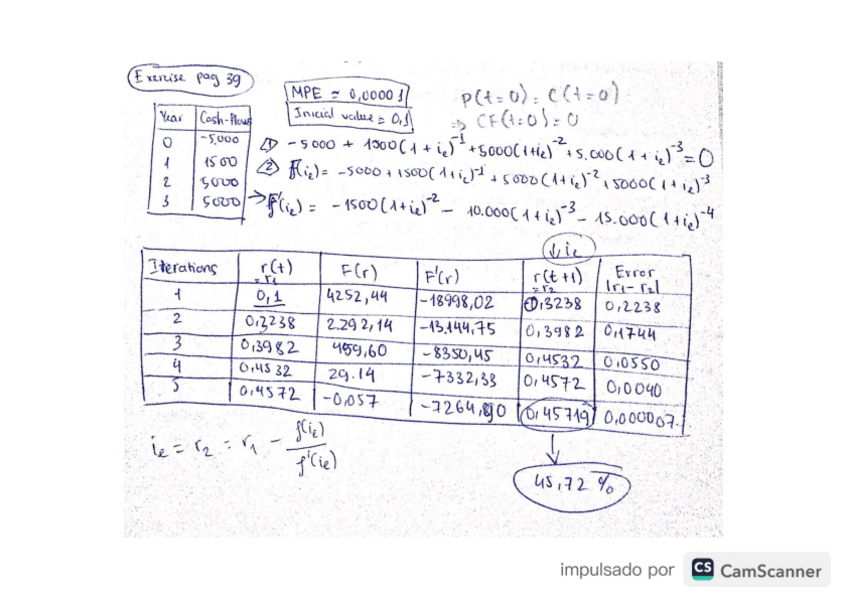 Exercise pag 39
MPE ≃ 0,00001
Inicial value = 0,1
P(t=0) = C(t=0)
=> CF(t=0) = 0
Year Cash-Flows
0 -5.000
1 1500
2 5000
3 5000
① -5000 + 1500(1+ie)^-1 + 5000(1+ie)^-2 + 5.000(1+ie)^-3 = 0
② F(ie) = -5000 + 1500(1+ie)^-1 + 5000(1+ie)^-2 + 5000(1+ie)^-3
→ F'(ie) = -1500(1+ie)^-2 - 10.000(1+ie)^-3 - 15.000(1+ie)^-4
↓ ie
Iterations r(t) = r1 F(r) F'(r) r(t+1) = r2 Error |r1 - r2|
1 0,1 4252,44 -18998,02 0,3238 0,2238
2 0,3238 2.292,14 -13.144,75 0,3982 0,1744
3 0,3982 459,60 -8350,45 0,4532 0,0550
4 0,4532 29.14 -7332,33 0,4572 0,0040
5 0,4572 -0,057 -7264,890 0,45719 0,000007.
ie = r2 = r1 - f(ie) / f'(ie)
45,72 %
impulsado por CS CamScanner